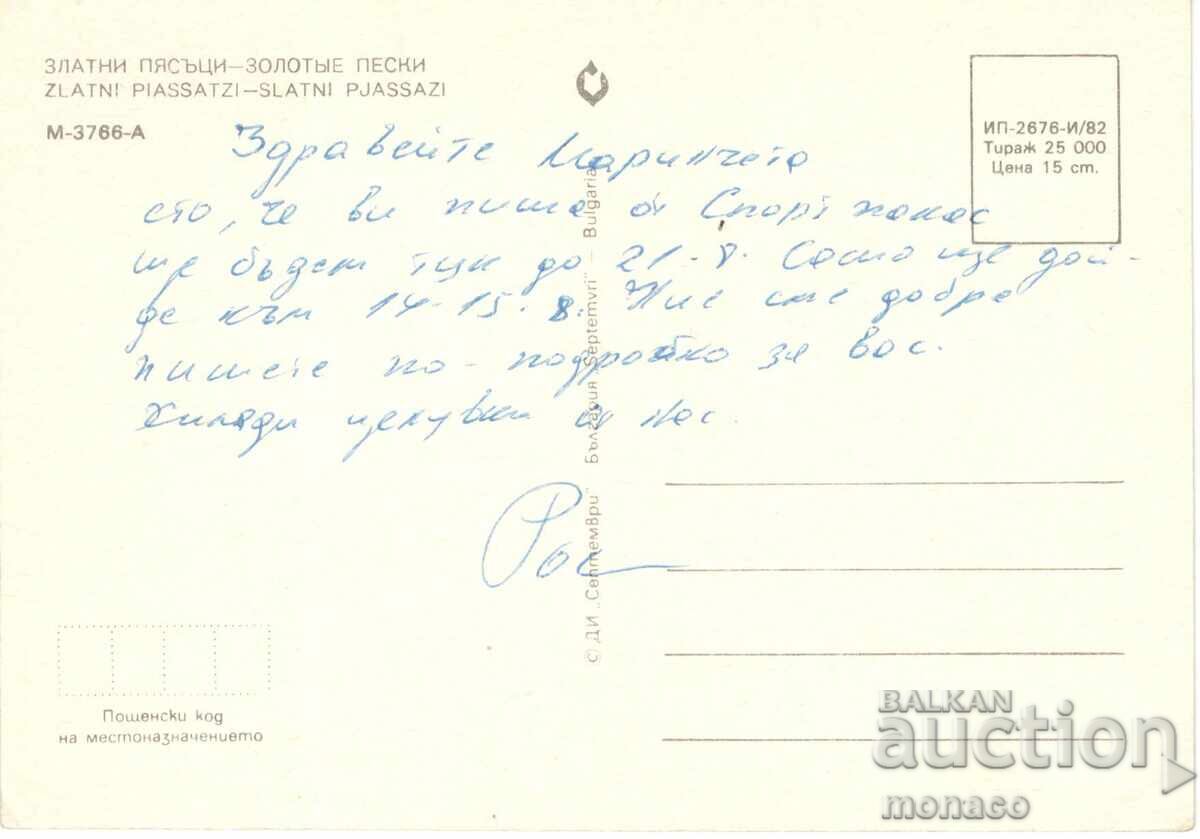 ЗЛАТНИ ПЯСЪЦИ—ЗОЛОТЫЕ ПЕСКИ
ZLATNI PIASSATZI—SLATNI PJASSAZI
М-3766-А
ИП-2676-И/82
Тираж 25 000
Цена 15 ст.
Здравейте Маринчета
ето, че ви пиша от Спорт палас
ще бъдем тук до 21-8. Сашо ще дой-
де към 14-15.8. Ние сме добре
пишете по-подробно за вас.
Хиляди целувки от нас.
© ДИ „Септември" България „Septemvri" — Bulgaria
Пощенски код
на местоназначението
BALKAN
auction
monaco